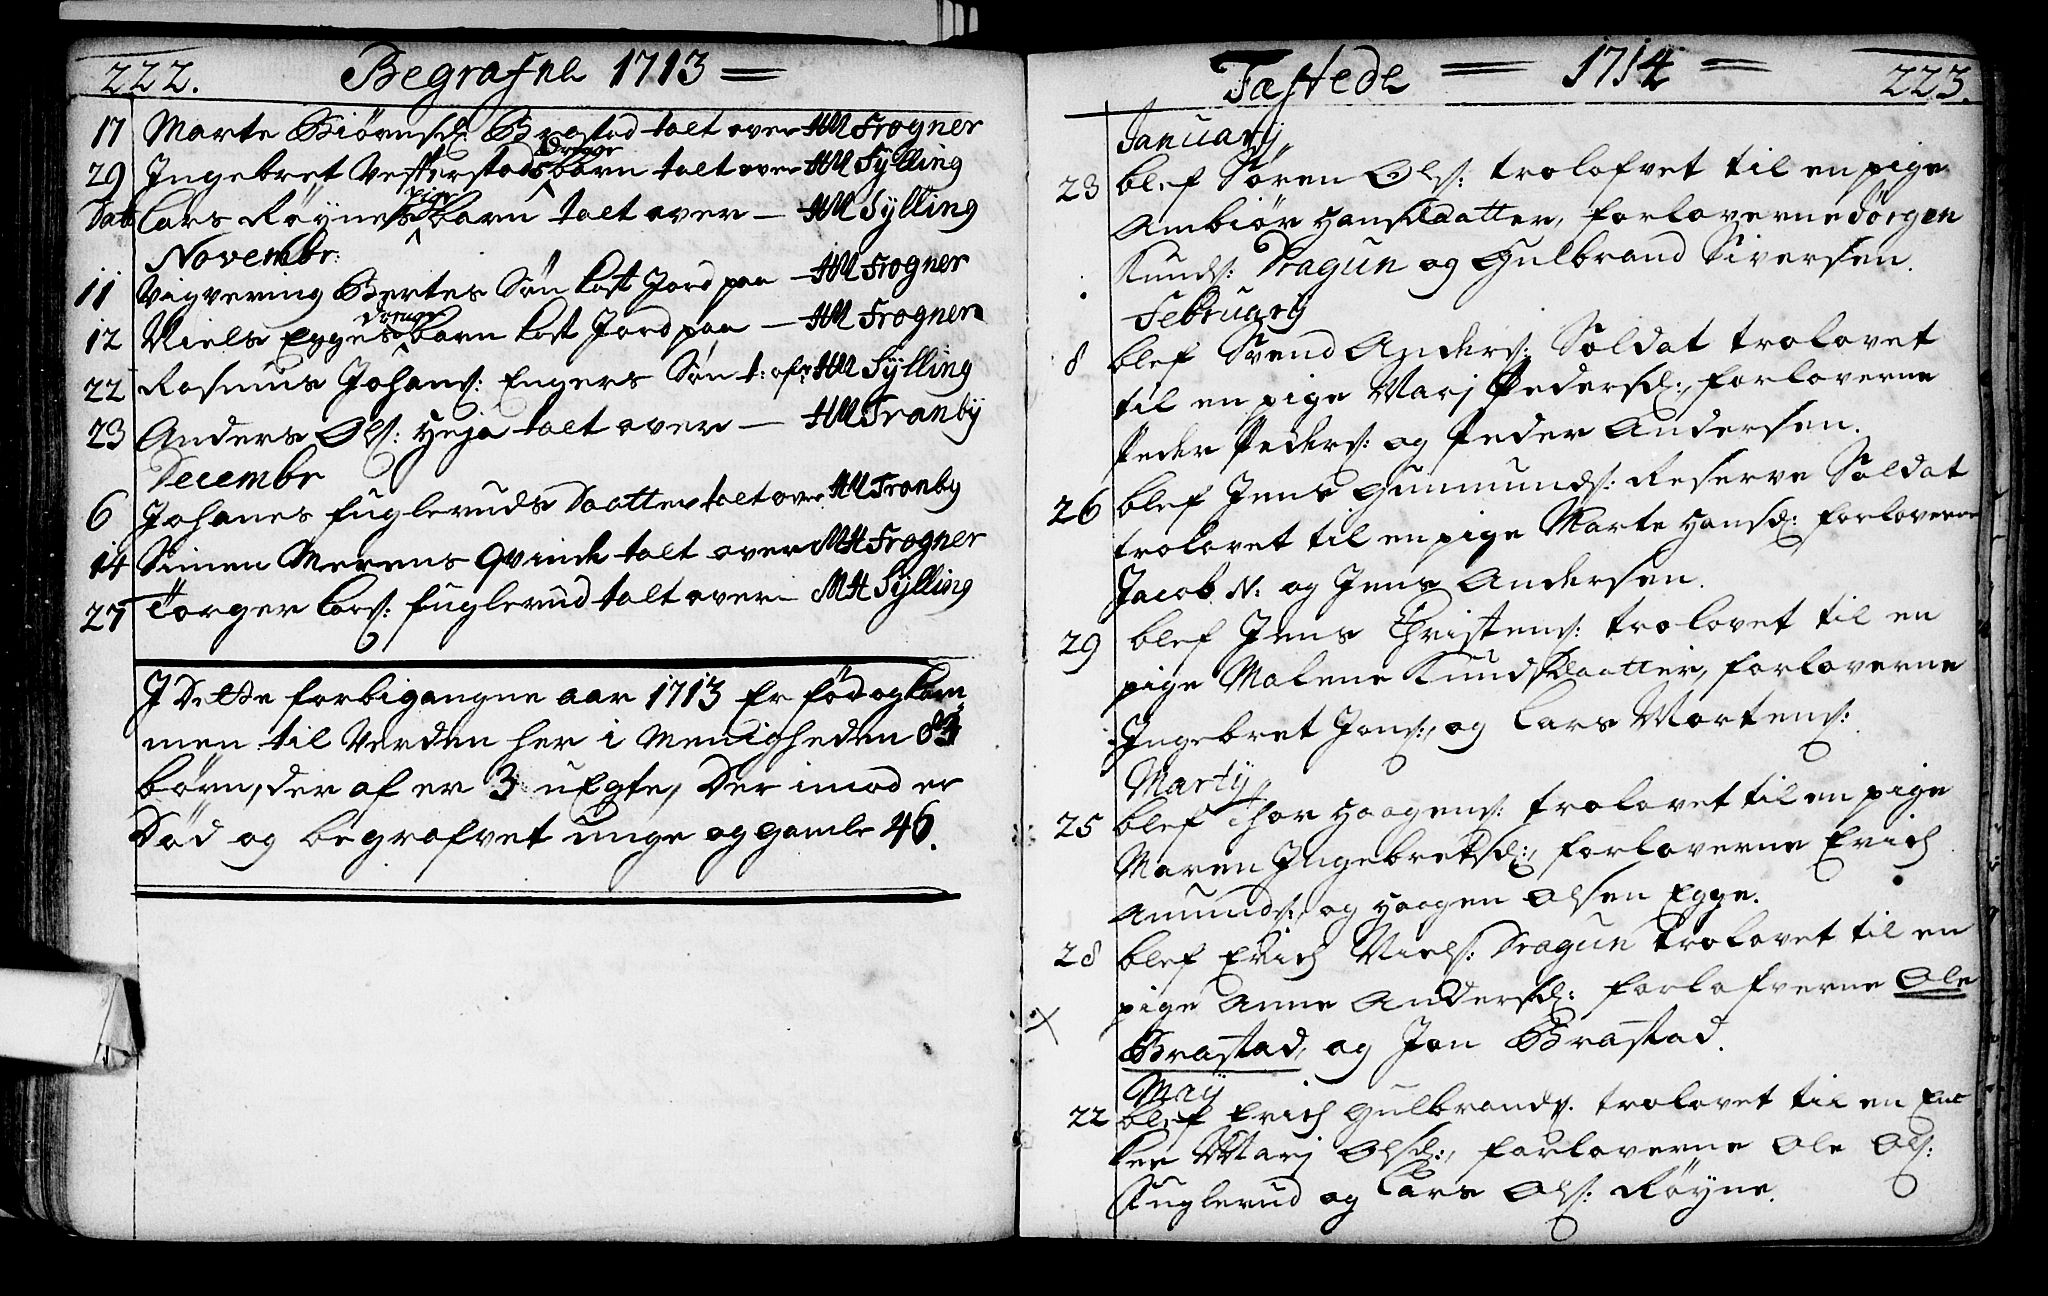 222. Begrafne 1713
17 Marte Biörnsd: Brastad talt over HM Frogner
29 Ingebret Vefferstads drenge barn talt over HM Sÿlling
Dato Lars Röÿnes pige barn talt over — HM Sÿlling
Novembr:
11 Vigvering Bertes Sön kast Jord paa — HM Frogner
12 Niels Egges drenge barn kast Jord paa — HM Frogner
22 Rasmus Johans: Engers Sön t: ofr HM Sÿlling
23 Anders Ols: Heja talt over — HM Tranbÿ
Decembr
6 Johanes fugleruds Daatter talt over HM Tranby
14 Simen Merens Qvinde talt over MH Frogner
27 Torger Lars: fuglerud talt over MH Sÿlling
I Dette forbigangne aar 1713 Er föd og kom„
men til Verden her i Menigheden 83
börn, der af er 3 uEgte, Der imod er
Död og begrafvet unge og gamle 46.
Fæstede 1714 223.
Januarÿ
23 blef Sören Ols: trolofvet til en pige
Ambiör Hansdaatter, forloverne Jörgen
Knuds: Dragun og Gulbrand Siversen.
Februarÿ
8 blef Svend Anders: Soldat trolovet
til en pige Marj Pedersd:, forloverne
Peder Peders: og Peder Andersen.
26 blef Jens Gunmunds: Reserve Soldat
trolovet til en pige Marte Hansd: forloverne
Jacob N: og Jens Andersen.
29 blef Jens Christens: trolovet til en
pige Malene Knudsdaatter, forloverne
Ingebret Jons:, og Lars Mortens:
Martÿ
25 blef Thor Haagens: trolovet til en pige
Maren Ingebretsd:, forloverne Erich
Amunds:, og Haagen Olsen Egge.
28 blef Erich Niels: Dragun trolovet til en
pige Anne Andersd: forlofverne Ole
Brastad, og Jon Brastad.
Maÿ
22 blef Erich Gulbrands. trolovet til en Enc
kee Marj Olsd:, forloverne Ole Ols:
Fuglerud og Lars Ols: Röÿne.